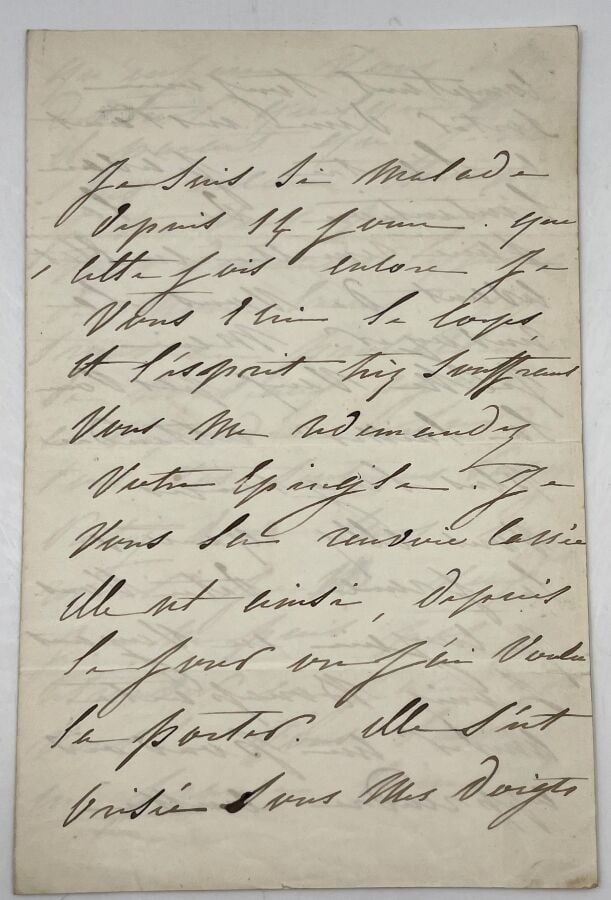 Je suis si malade
depuis 14 jours. que
cette fois encore je
vous écris le corps
et l'esprit très souffrans
Vous me redemandez
Votre Epingle. Je
vous la renvoie cassée
elle est ainsi, depuis
le jour ou j'ai voulu
la porter. elle s'est
brisée sous mes doigts